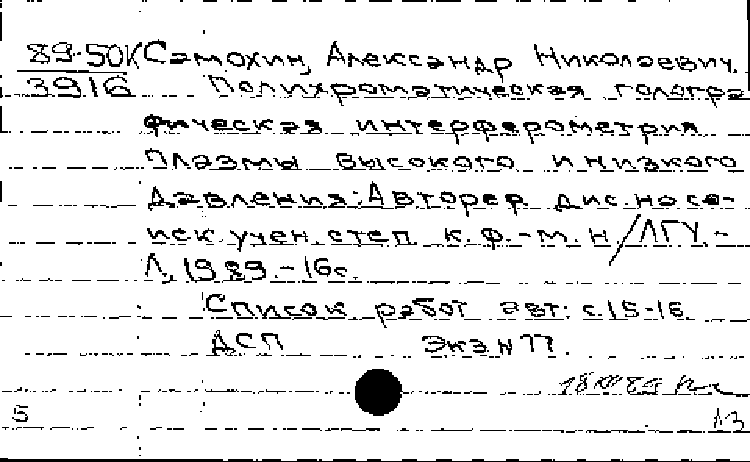 89-50К Самохин, Александр Николаевич.
3916 Полихроматическая гологра
фическая интерферометрия
плазмы высокого и низкого
давления: Автореф. дис. на со-
иск. учен. степ. к. ф.-м. н./ЛГУ.-
Л, 1989.-16с.
Список работ авт: с.15-16.
ДСП Экз N 77.
5